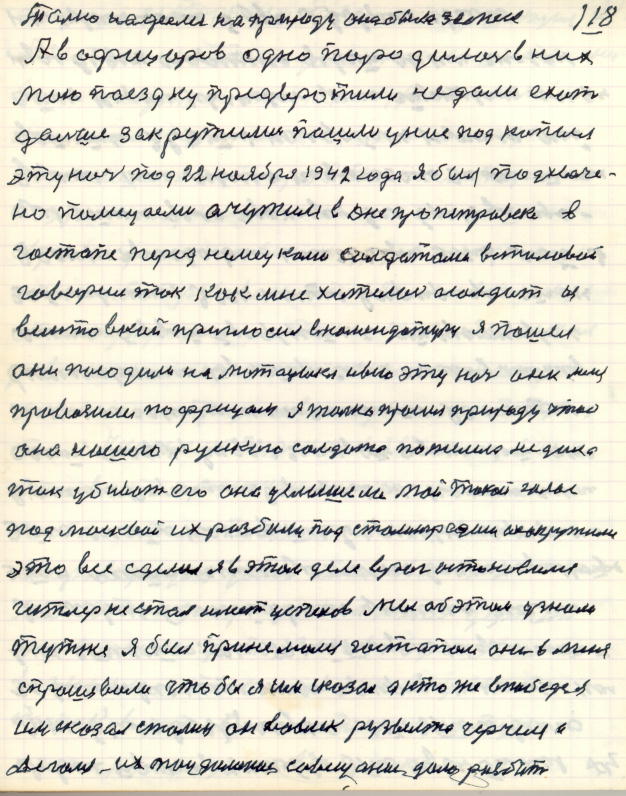 Толко надеели на природу она была замен 118
А в офицеров одно пародилось в них
мою поездну предвротили недали ехот
далше закрутили пошли у ние под копыл
эту ноч под 22 ноября 1942 года я был подхваче-
но помещаели очутили в Днепропетровске в
гостапе перед немецкими солдотами встоловой
говорил так как мне хотелос а солдот и
винтовкой пригласил вкомендотуру я пошел
они посодили на мотацыкл ивсю эту ноч они меня
провозили по фрицам я толко просил природу чтоб
она нашего руского солдата пожелела недала
так убиват его она услышела мой токой голос
под москвой их розбили под сталинградам акружили
это все сделал я в этом деле враг астоновили
гитлер не стал имет успехов мы об этом узнали
тутже я был принемали гостапом они в меня
спрошвали чтобы я им сказал а кто же впобедел
им сказал сталин он вовлек рузвелта черчел и
Деголя их совещание дало розбит